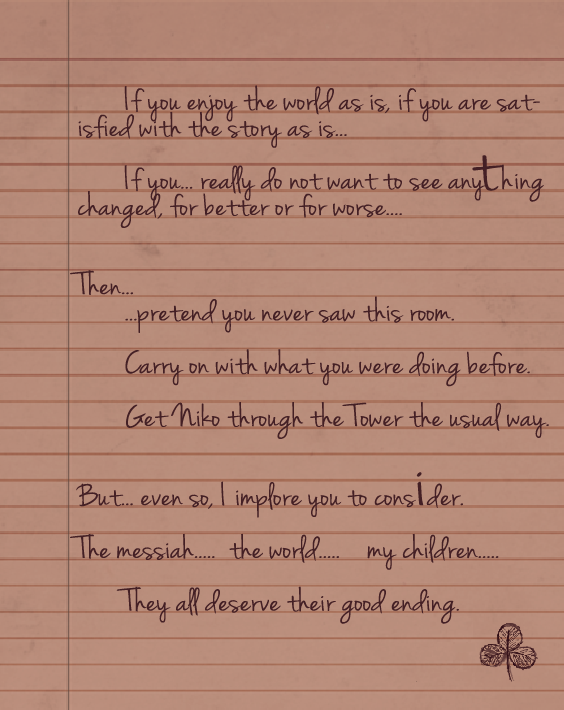 If you enjoy the world as is, if you are sat-
isfied with the story as is...
If you... really do not want to see anything
changed, for better or for worse....
Then...
...pretend you never saw this room.
Carry on with what you were doing before.
Get Niko through the Tower the usual way.
But... even so, I implore you to consider.
The messiah..... the world..... my children.....
They all deserve their good ending.